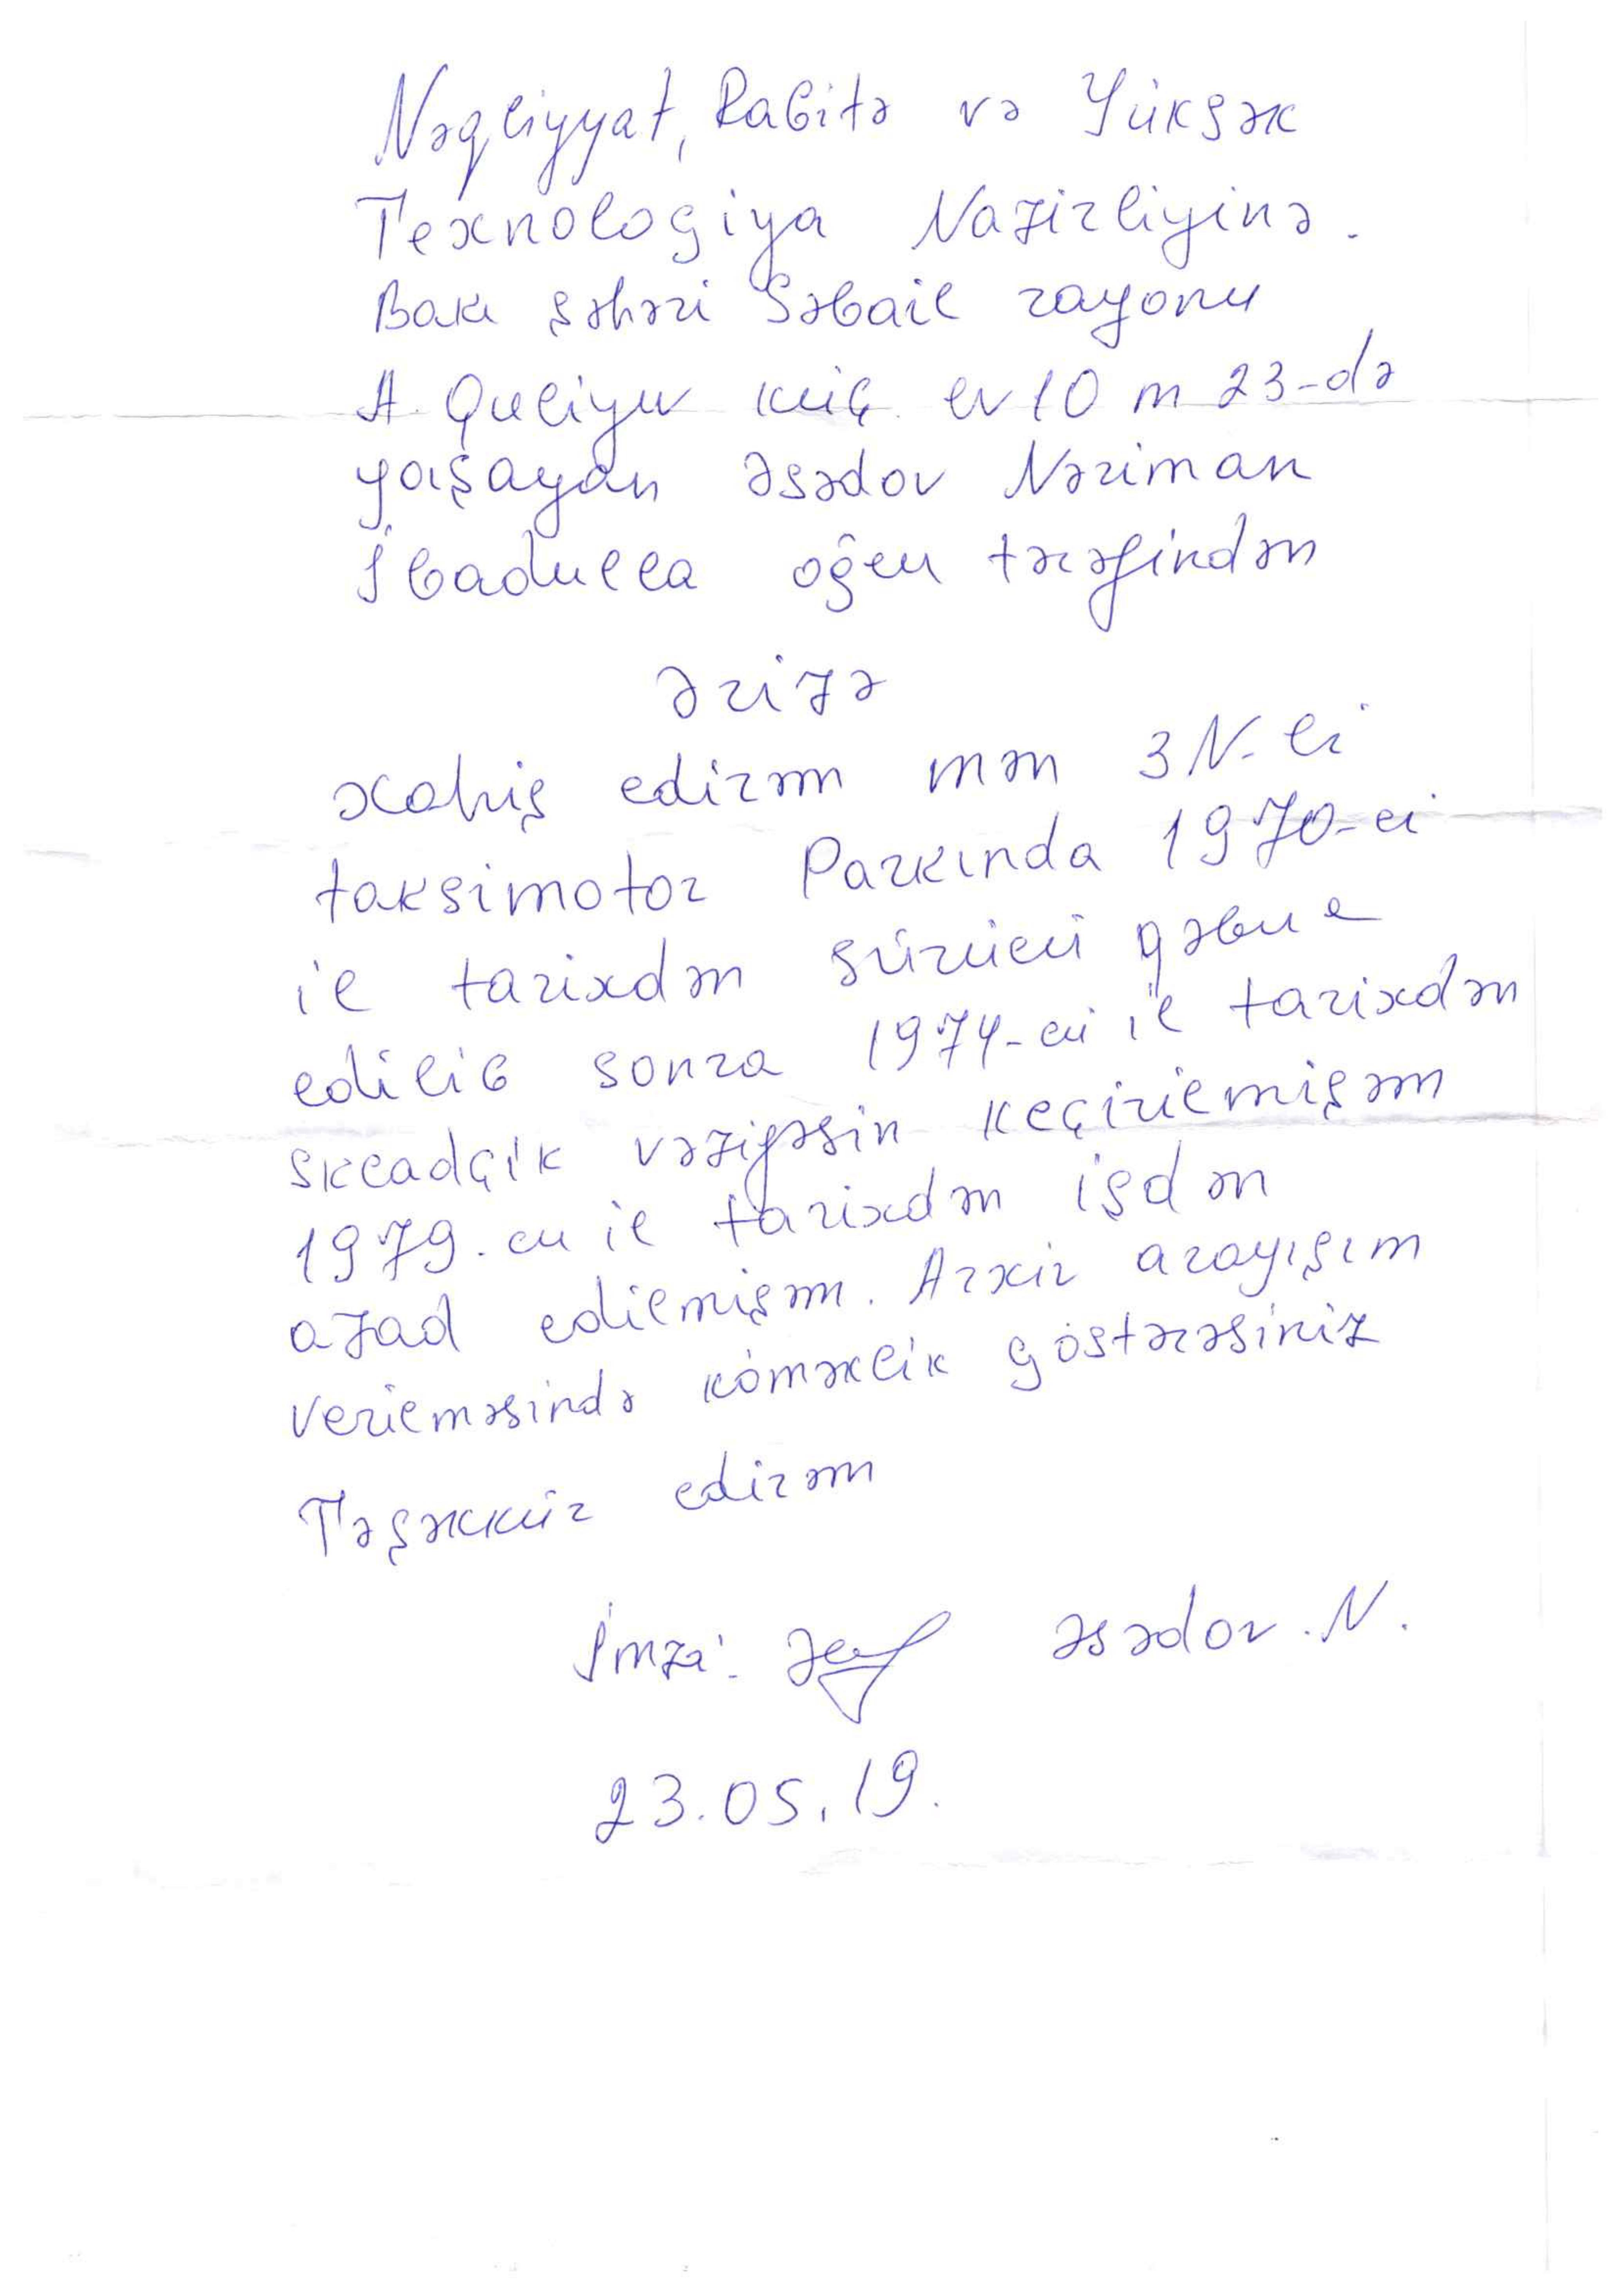 Nəqliyyat, Rabitə və Yüksək
Texnologiya Nazirliyinə.
Bakı şəhəri Səbail rayonu
A. Quliyev küç. ev 10 m 23-də
yaşayan Əsədov Nəriman
İbadulla oğlu tərəfindən
Ərizə
Xahiş edirəm mən 3 N-li
taksimotor Parkında 1970-ci
il tarixdən sürücü qəbul
edilib sonra 1974-cü il tarixdən
skladçik vəzifəsin keçirilmişəm
1979.cu il tarixdən işdən
azad edilmişəm. Arxiv arayışım
verilməsində köməklik göstərəsiniz
Təşəkkür edirəm
İmza: Əsədov.N.
23.05.19.